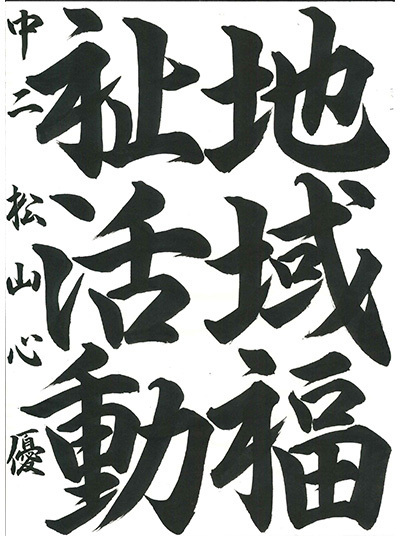 地域福
祉活動
中二 松山心優